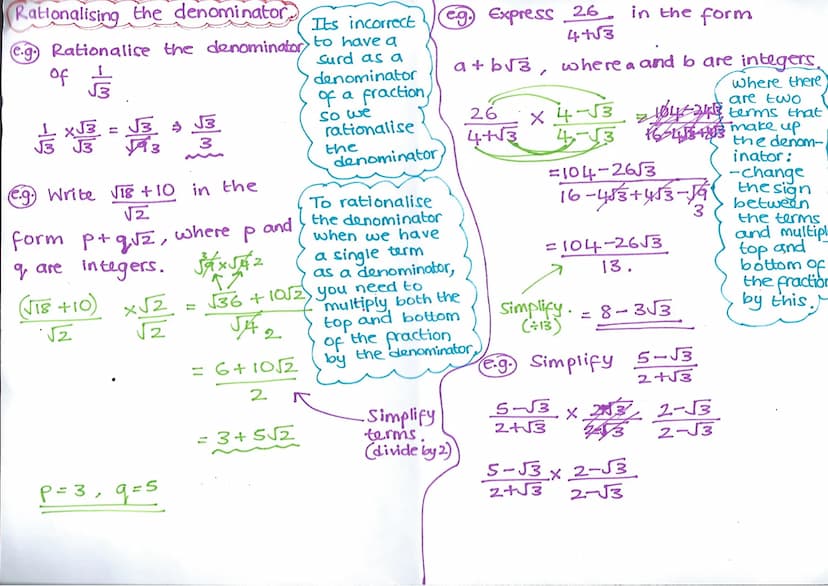 Rationalising the denominator.
e.g. Rationalise the denominator
of 1/√3
1/√3 × √3/√3 = √3/√9 3 ⇒ √3/3
Its incorrect
to have a
surd as a
denominator
of a fraction
so we
rationalise
the
denominator
e.g. Write (√18 + 10)/√2 in the
form p + q√2, where p and
q are integers.
3 √9 × √4 2
(√18 + 10)/√2 × √2/√2 = (√36 + 10√2)/√4 2
= (6 + 10√2)/2
= 3 + 5√2
Simplify
terms.
(divide by 2)
p = 3, q = 5
To rationalise
the denominator
when we have
a single term
as a denominator,
you need to
multiply both the
top and bottom
of the fraction
by the denominator
e.g. Express 26/(4+√3) in the form
a + b√3, where a and b are integers.
26/(4+√3) × (4-√3)/(4-√3) =
= (104 - 26√3)/(16 - 4√3 + 4√3 - √9) 3
= (104 - 26√3)/13.
Simplify.
(÷13)
= 8 - 3√3
where there
are two
terms that
make up
the denom-
inator:
- change
the sign
between
the terms
and multipl
top and
bottom of
the fraction
by this.
e.g. Simplify (5-√3)/(2+√3)
(5-√3)/(2+√3) × (2-√3)/(2-√3)
(5-√3)/(2+√3) × (2-√3)/(2-√3)